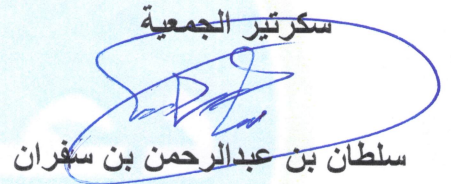 سكرتير الجمعية
سلطان بن عبدالرحمن بن سفران